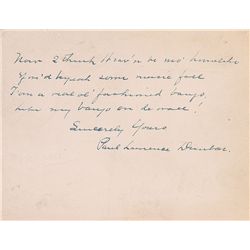 Now I think Heav'n be mo' homelike
I'd hyeah some music fall
F'om a real ol' fashioned banjo,
Like my banjo on de wall!
Sincerely Yours
Paul Laurence Dunbar.